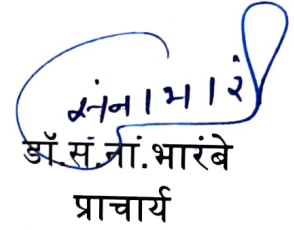 सं ना भा रं
डॉ.सं.नां.भारंबे
प्राचार्य